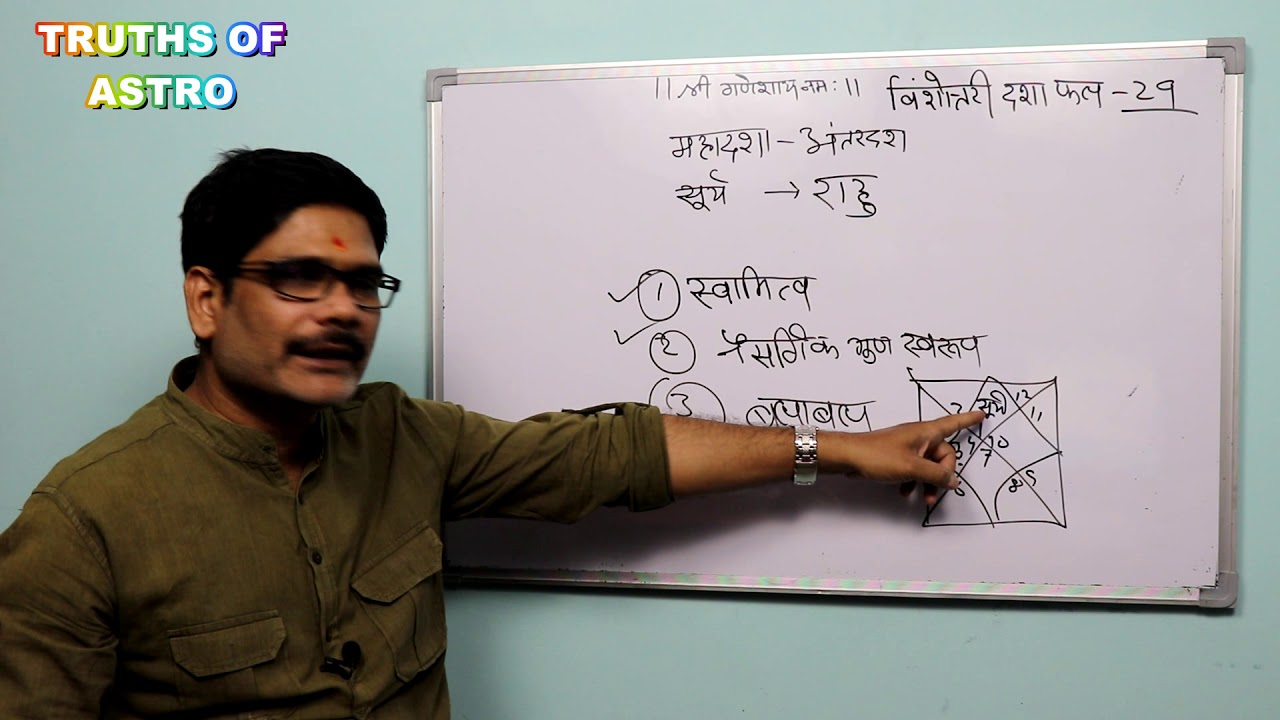 TRUTHS OF
ASTRO
।। श्री गणेशाय नमः ।।
विंशोत्तरी दशा फल - 29
महादशा - अंतरदशा
सूर्य → राहु
1 स्वामित्व
2 नैसर्गिक गुण स्वरूप
3 बलाबल
सूर्य 12
11
10
7